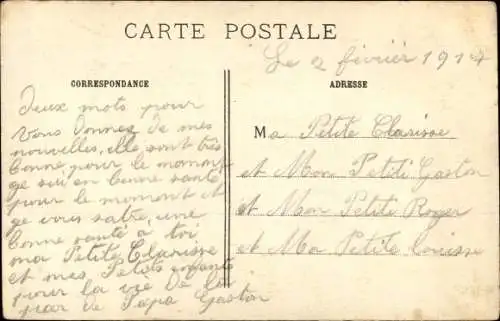 CARTE POSTALE
Le 2 février 1917
CORRESPONDANCE
ADRESSE
Deux mots pour
Vous donnez de mes
nouvelles, elle sont très
bonne pour le moment
ge sui en bonne santé
pour le moment et
ge vous
une
bonne santé a toi
ma Petite Clarisse
et mes Petits enfants
pour la vie de la
par de Papa Gaston
Ma Petite Clarisse
et Mon Petiti Gaston
et Mon Petite Roger
et Ma Petite Louisse